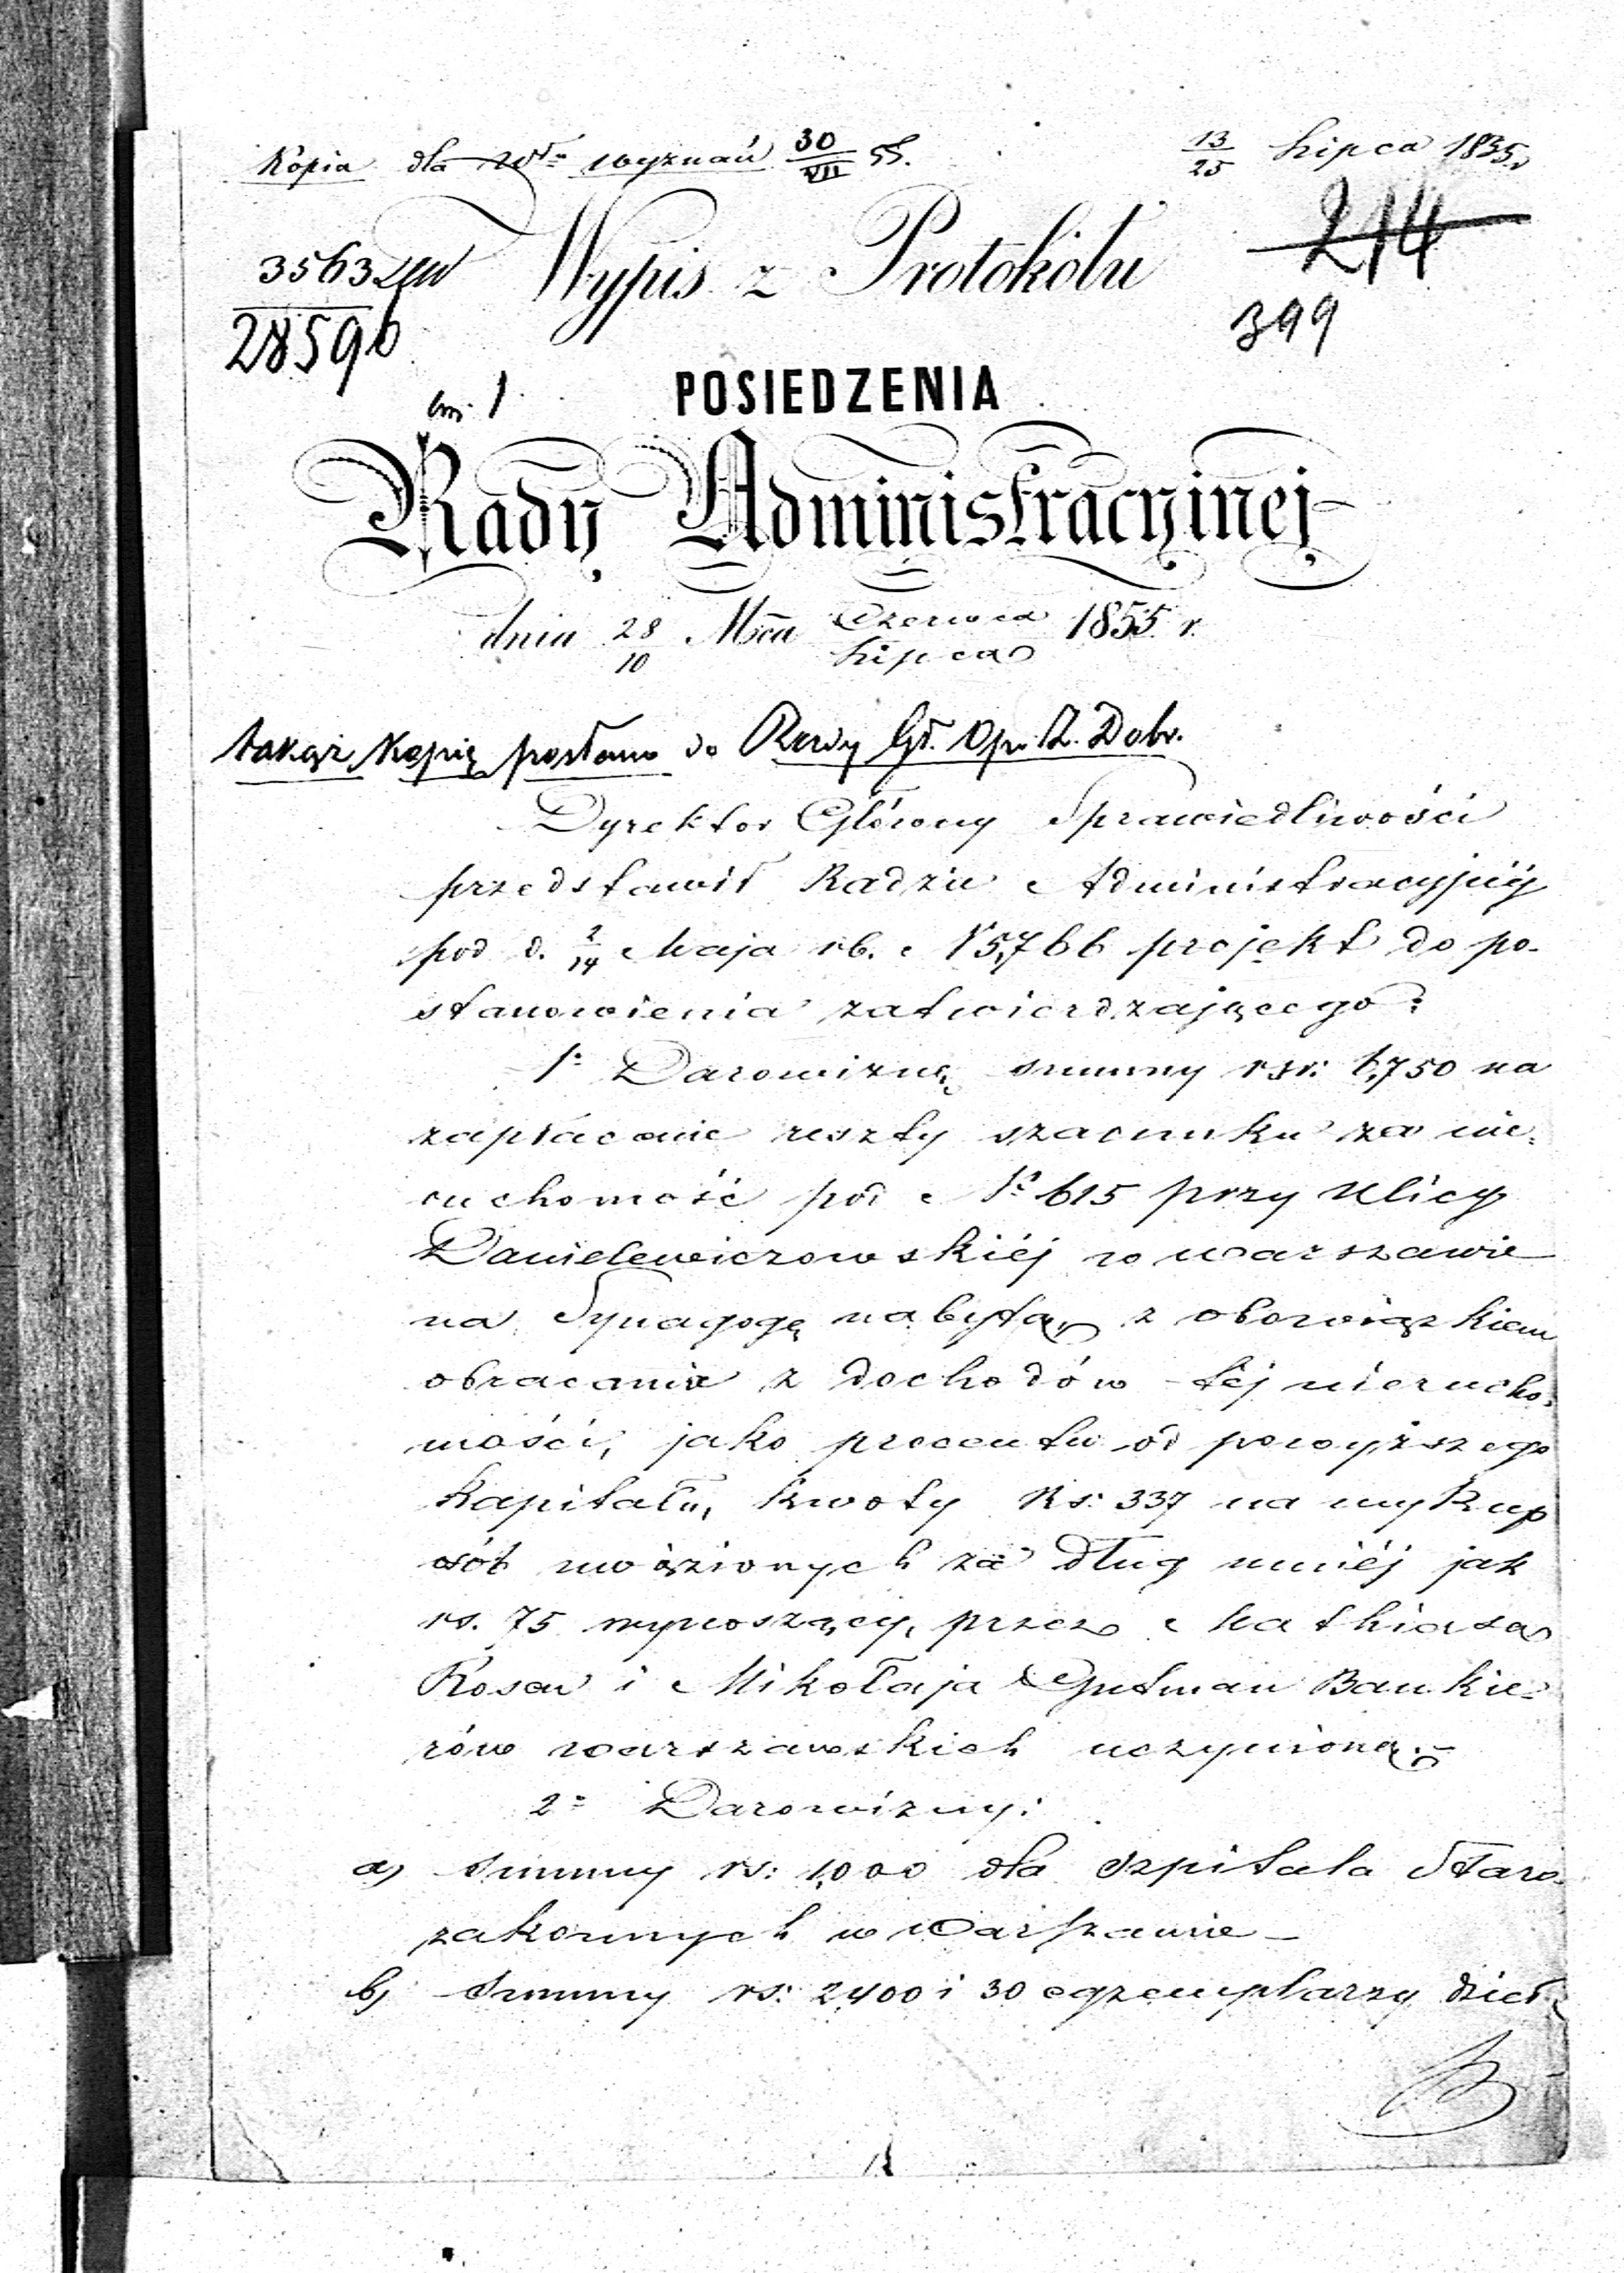 Kopia dla Wł. wyznań 30/VII 55.
13/25 Lipca 1855.
3563
28596
Wypis z Protokółu
214
399
POSIEDZENIA
Rady Administracyinej
dnia 28/10 Mca Czerwca/Lipca 1855 r.
takąż Kopię posłano do Rady Gł. Op. Z. Dobr.
Dyrektor Główny Sprawiedliwości
przedstawił Radzie Administracyjnéj
pod d. 2/14 Maja rb. N 5,766 projekt do po-
stanowienia zatwierdzającego:
1º Darowiznę summy rsr: 6,750 na
zapłacenie reszty szacunku za nie-
ruchomość pod Nº 615 przy Ulicy
Danielewiczowskiéj w Warszawie
na Synagogę nabytą, z obowiązkiem
obracania z dochodów téj nierucho-
mości, jako procentu od powyższego
Kapitału, kwoty Rs: 337 na wykup
osób uwięzionych za dług mniéj jak
rs. 75 wynoszący, przez Mathiasa
Rosen i Mikołaja Gutman Bankie-
rów warszawskich uczynioną.
2º Darowizny:
a) Summy rs: 1,000 dla Szpitala Staro-
zakonnych w Warszawie –
b) Summy rs: 2,400 i 30 egzemplarzy dzieł